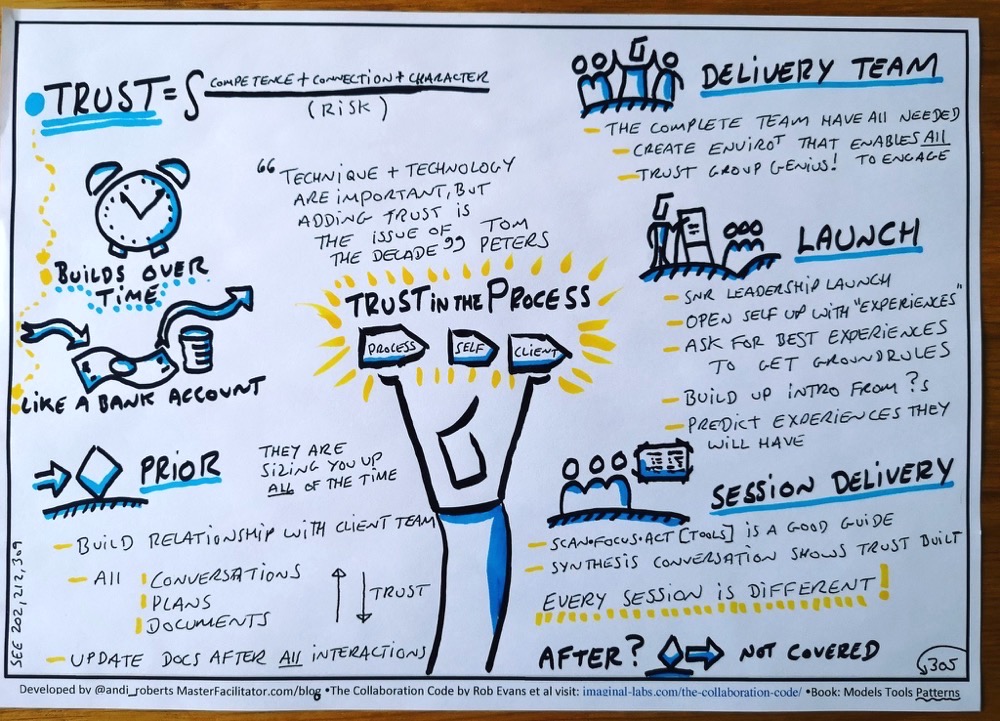 TRUST = ∫ COMPETENCE + CONNECTION + CHARACTER
(RISK)
“TECHNIQUE + TECHNOLOGY
ARE IMPORTANT, BUT
ADDING TRUST IS
THE ISSUE OF
THE DECADE” TOM
PETERS
BUILDS OVER
TIME
LIKE A BANK ACCOUNT
TRUST IN THE PROCESS
PROCESS
SELF
CLIENT
PRIOR
THEY ARE
SIZING YOU UP
ALL OF THE TIME
- BUILD RELATIONSHIP WITH CLIENT TEAM
- All CONVERSATIONS
PLANS
DOCUMENTS
TRUST
- UPDATE DOCS AFTER All INTERACTIONS
SEE 202, 212, 309
DELIVERY TEAM
- THE COMPLETE TEAM HAVE All NEEDED
- CREATE ENVIROT THAT ENABLES All
TO ENGAGE
- TRUST GROUP GENIUS!
LAUNCH
- SNR LEADERSHIP LAUNCH
- OPEN SELF UP WITH "EXPERIENCES"
- ASK FOR BEST EXPERIENCES
TO GET GROUNDRULES
- BUILD UP INTRO FROM ?s
- PREDICT EXPERIENCES THEY
WILL HAVE
SESSION DELIVERY
- SCAN•FOCUS•ACT [TOOLS] IS A GOOD GUIDE
- SYNTHESIS CONVERSATION SHOWS TRUST BUILT
EVERY SESSION IS DIFFERENT!
AFTER? NOT COVERED
305
Developed by @andi_roberts MasterFacilitator.com/blog •The Collaboration Code by Rob Evans et al visit: imaginal-labs.com/the-collaboration-code/ •Book: Models Tools Patterns